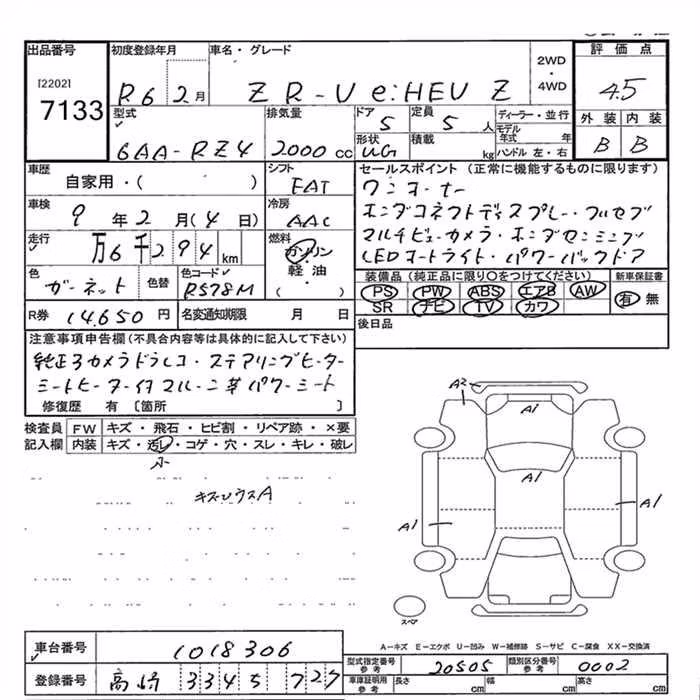 出品番号 初度登録年月 車名・グレード 2WD・4WD 評価点
[2202] 7133 R6 2月 ZR-V e:HEV Z 4.5
型式 排気量 ドア 定員 ディーラー・並行 外装 内装
6AA-RZ4 2000 cc 5 5 人 モデル年式 年 B B
形状 UG 積載 kg ハンドル 左・右
車歴 自家用・( ) シフト FAT セールスポイント (正常に機能するものに限ります)
ワンオーナー
車検 9年2月(4日) 冷房 AAC ホンダコネクトディスプレー・フルセグ
走行 万6千294km 燃料 ガソリン・軽油・( ) マルチビューカメラ・ホンダセンシング
LEDオートライト・パワーバックドア
色 ガーネット 色替 色コード R578M 装備品 (純正品に限り○をつけてください) 新車保証書
PS PW ABS エアB AW 有・無
SR ナビ TV カワ
R券 14,650円 名変通知期限 月 日 後日品
注意事項申告欄(不具合内容等は具体的に記入して下さい)
純正カメラドラレコ・ステアリングヒーター
シートヒーター パワーシート
修復歴 有 〔箇所 〕
検査員 FW キズ・飛石・ヒビ割・リペア跡・×要
記入欄 内装 キズ・汚レ・コゲ・穴・スレ・キレ・破レ
小
キズ・ウスA
A2
A1
A1
A1
A1
スペア
A-キズ E-エクボ U-凹み W-補修跡 S-サビ C-腐食 XX-交換済
車台番号 1018306
型式指定番号 参考 20505 類別区分番号 参考 0002
登録番号 高崎 334 5 727
車庫証明用 参考 長さ cm 幅 cm 高さ cm